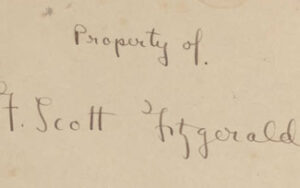 Property of.
F. Scott Fitzgerald